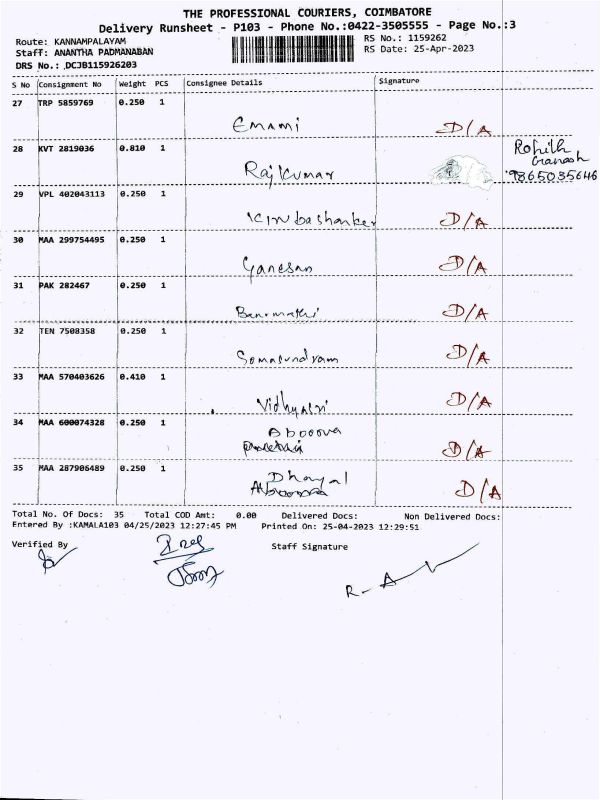 THE PROFESSIONAL COURIERS, COIMBATORE
Delivery Runsheet - P103 - Phone No.:0422-3505555 - Page No.:3
Route: KANNAMPALAYAM RS No.: 1159262
Staff: ANANTHA PADMANABAN RS Date: 25-Apr-2023
DRS No.: DCJB115926203
S No Consignment No Weight PCS Consignee Details Signature
27 TRP 5859769 0.250 1
Emami D/A
28 KVT 2819036 0.810 1 Rohith
Ganash
Raj Kumar 9865035646
29 VPL 402043113 0.250 1
D/A
30 MAA 299754495 0.250 1
Ganesan D/A
31 PAK 282467 0.250 1
D/A
32 TEN 7508358 0.250 1
Somasundram D/A
33 MAA 570403626 0.410 1
D/A
34 MAA 600074328 0.250 1
Abooova
D/A
35 MAA 287906489 0.250 1
Dhayal
D/A
Total No. Of Docs: 35 Total COD Amt: 0.00 Delivered Docs: Non Delivered Docs:
Entered By :KAMALA103 04/25/2023 12:27:45 PM Printed On: 25-04-2023 12:29:51
Verified By Staff Signature